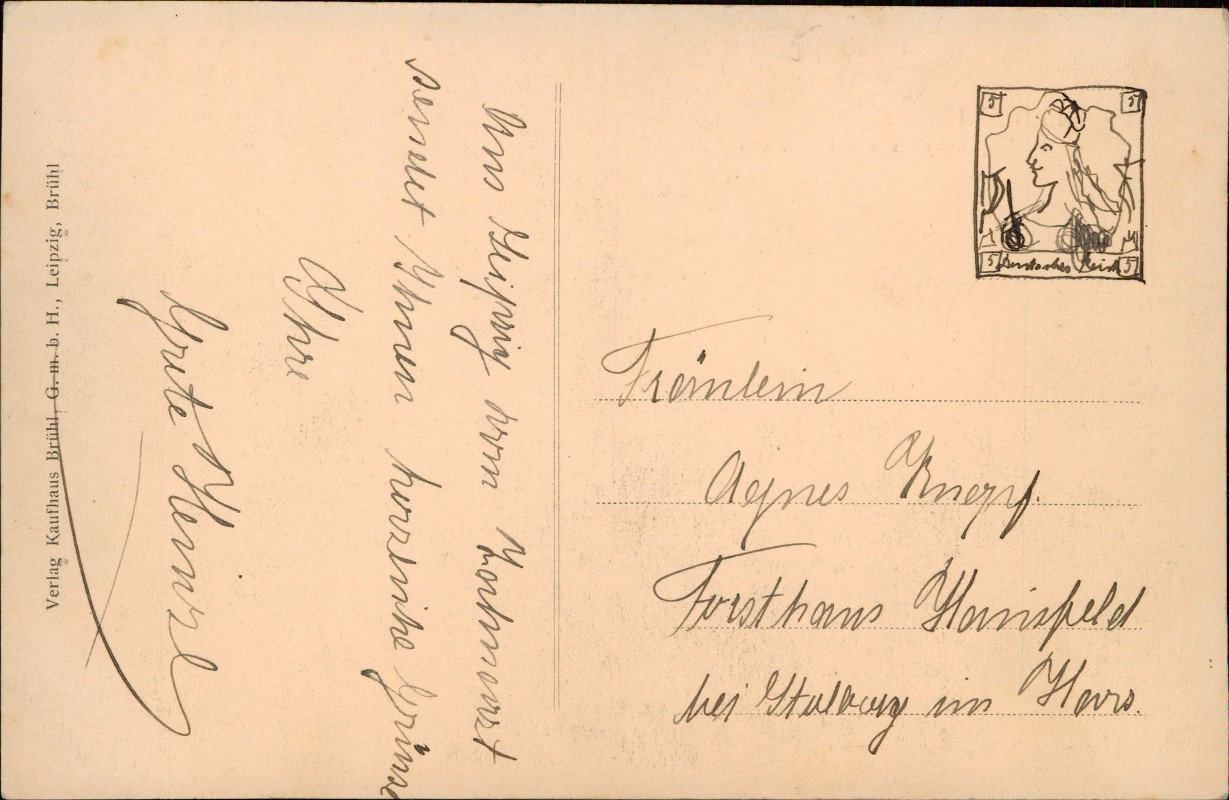 Aus Leipzig vom
sendet Ihnen herzliche Grüsse
Ihre
Grete Henzel
Verlag Kaufhaus Brühl, G. m. b. H., Leipzig, Brühl
5 5
5 Deutsches Reich 5
Fräulein
Agnes
Forsthaus Hainsfeld
bei Stolberg im Harz.